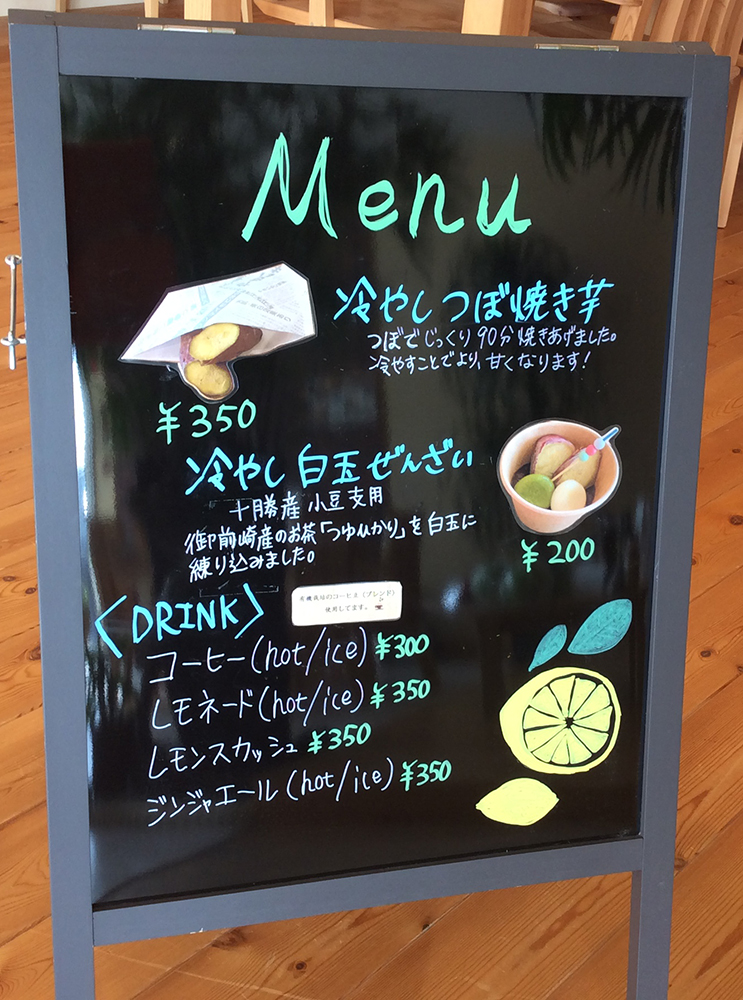 Menu
冷やしつぼ焼き芋
つぼでじっくり90分焼きあげました。
冷やすことでより、甘くなります!
¥350
冷やし白玉ぜんざい
十勝産小豆支用
御前崎産のお茶「つゆひかり」を白玉に
練り込みました。
¥200
〈DRINK〉
有機栽培のコーヒー(ブレンド)
使用してます。
コーヒー(hot/ice) ¥300
レモネード(hot/ice) ¥350
レモンスカッシュ ¥350
ジンジャエール(hot/ice) ¥350